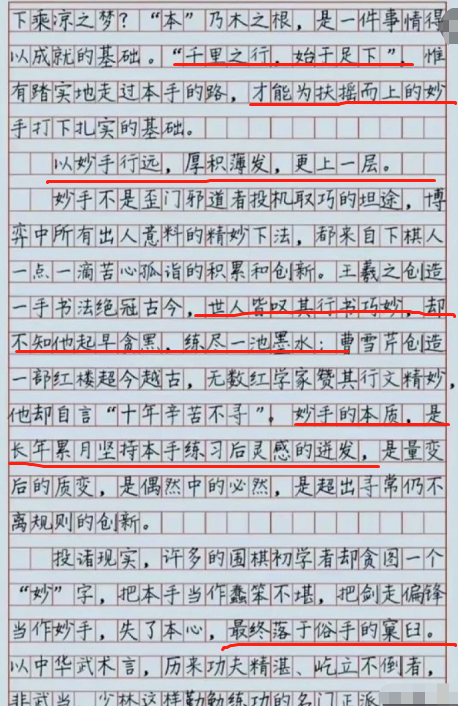 下乘凉之梦？“本”乃木之根，是一件事情得
以成就的基础。“千里之行，始于足下”，惟
有踏实地走过本手的路，才能为扶摇而上的妙
手打下扎实的基础。
以妙手行远，厚积薄发，更上一层。
妙手不是歪门邪道者投机取巧的坦途，博
弈中所有出人意料的精妙下法，都来自下棋人
一点一滴苦心孤诣的积累和创新。王羲之创造
一手书法绝冠古今，世人皆叹其行书巧妙，却
不知他起早贪黑，练尽一池墨水；曹雪芹创造
一部红楼超今越古，无数红学家赞其行文精妙，
他却自言“十年辛苦不寻”，妙手的本质，是
长年累月坚持本手练习后灵感的迸发，是量变
后的质变，是偶然中的必然，是超出寻常仍不
离规则的创新。
投诸现实，许多的围棋初学者却贪图一个
“妙”字，把本手当作蠢笨不堪，把剑走偏锋
当作妙手，失了本心，最终落于俗手的窠臼。
以中华武术言，历来功夫精湛、屹立不倒者，
非武当、少林这样勤勉练功的名门正派